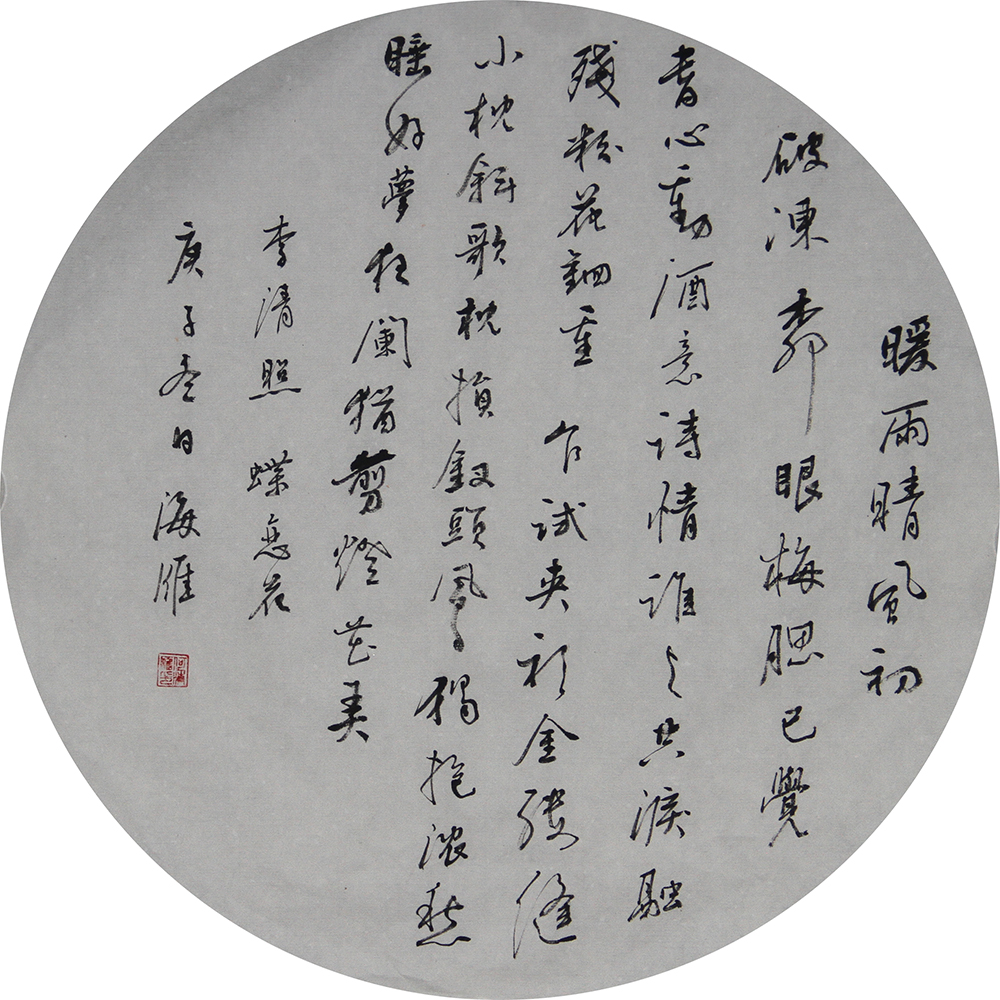 暖雨晴風初
破凍 柳眼梅腮已覺
春心動酒意詩情誰与共淚融
殘粉花鈿重 乍試夾衫金縷縫
小枕斜歌枕損釵頭鳳獨抱濃愁
睡好夢夜闌猶剪燈花弄
李清照 蝶恋花
庚子冬日 海雁